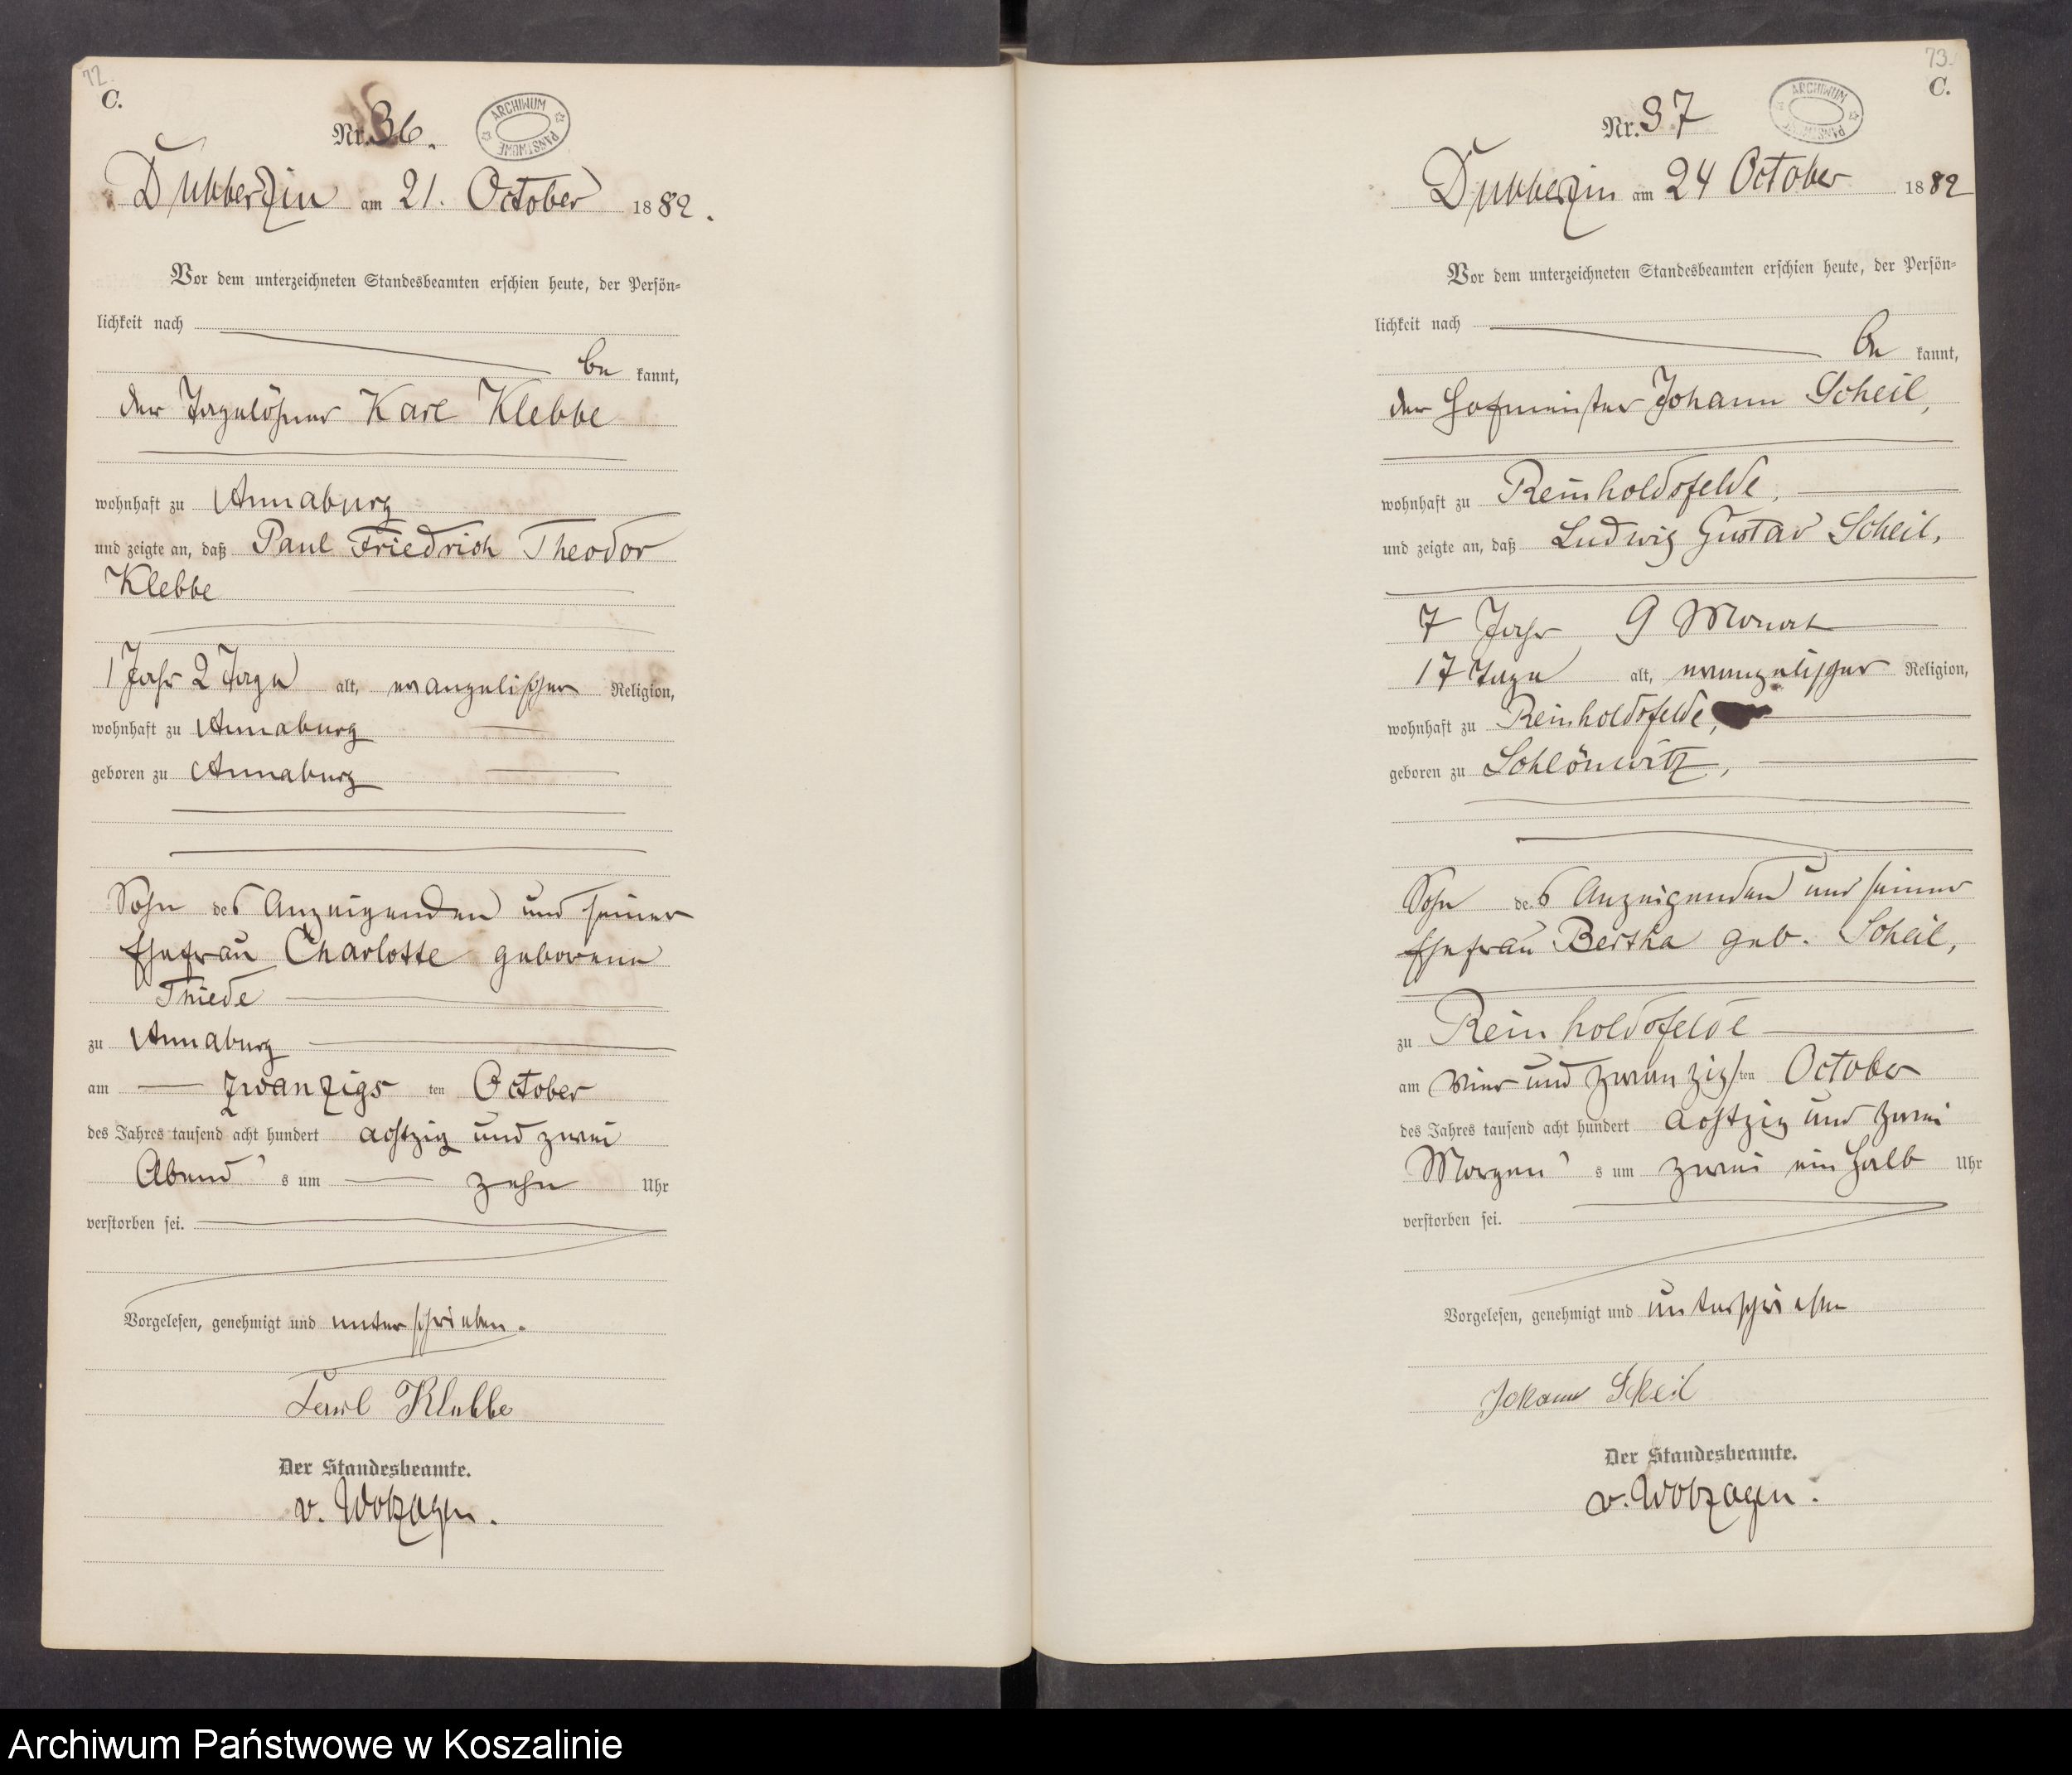 72.
C.
Nr. 36.
ARCHIWUM PAŃSTWOWE
Dubberzin am 21. October 1882.
Vor dem unterzeichneten Standesbeamten erschien heute, der Persön-
lichkeit nach
be kannt,
der Tagelöhner Karl Klebbe
wohnhaft zu Annaburg
und zeigte an, daß Paul Friedrich Theodor
Klebbe
1 Jahr 2 Tage alt, evangelischer Religion,
wohnhaft zu Annaburg
geboren zu Annaburg
Sohn des Anzeigenden und seiner
Ehefrau Charlotte geborene
Thiede
zu Annaburg
am zwanzigs ten October
des Jahres tausend acht hundert achtzig und zwei
Abend's um zehn Uhr
verstorben sei.
Vorgelesen, genehmigt und unterschrieben.
Karl Klebbe
Der Standesbeamte.
v.
73.
C.
Nr. 37
ARCHIWUM PAŃSTWOWE
Dubberzin am 24 October 1882
Vor dem unterzeichneten Standesbeamten erschien heute, der Persön-
lichkeit nach
be kannt,
der Hofmeister Johann Scheil,
wohnhaft zu Reinholdsfelde,
und zeigte an, daß Ludwig Gustav Scheil,
7 Jahr 9 Monat
17 Tage alt, evangelischer Religion,
wohnhaft zu Reinholdsfelde,
geboren zu Schlönwitz,
Sohn des Anzeigenden und seiner
Ehefrau Bertha geb. Scheil,
zu Reinholdsfelde
am vier und zwanzigs ten October
des Jahres tausend acht hundert achtzig und zwei
Morgen's um zwei ein halb Uhr
verstorben sei.
Vorgelesen, genehmigt und unterschrieben
Johann Scheil
Der Standesbeamte.
v.
Archiwum Państwowe w Koszalinie